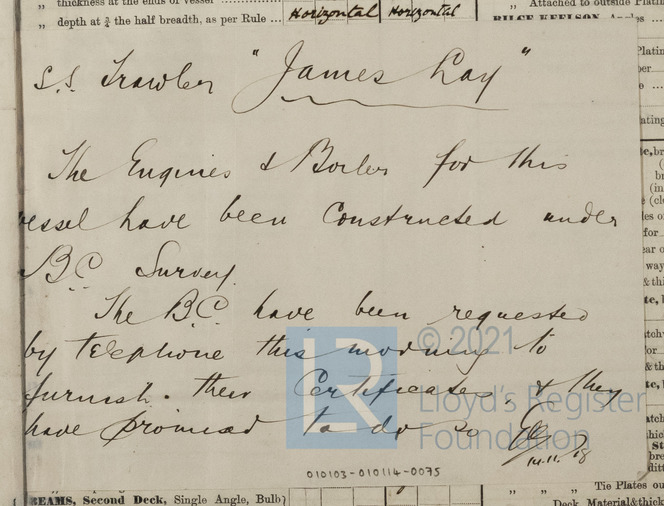 „ thickness at the ends of vessel
„ depth at ¾ the half breadth, as per Rule ... Horizontal Horizontal
„ Attached to outside Plati
BILGE KEELSON, Angles
S.S. Trawler "James Lay"
The Engines & Boiler for this
vessel have been constructed under
B.C. Survey.
The B.C. have been requested
by telephone this morning to
furnish their Certificates, & they
have promised to do so
14.11.18
© 2021
LR
Lloyd's Register
Foundation
010103-010114-0075
BEAMS, Second Deck, Single Angle, Bulb
„ „ Tie Plates ou
Deck. Material & thick